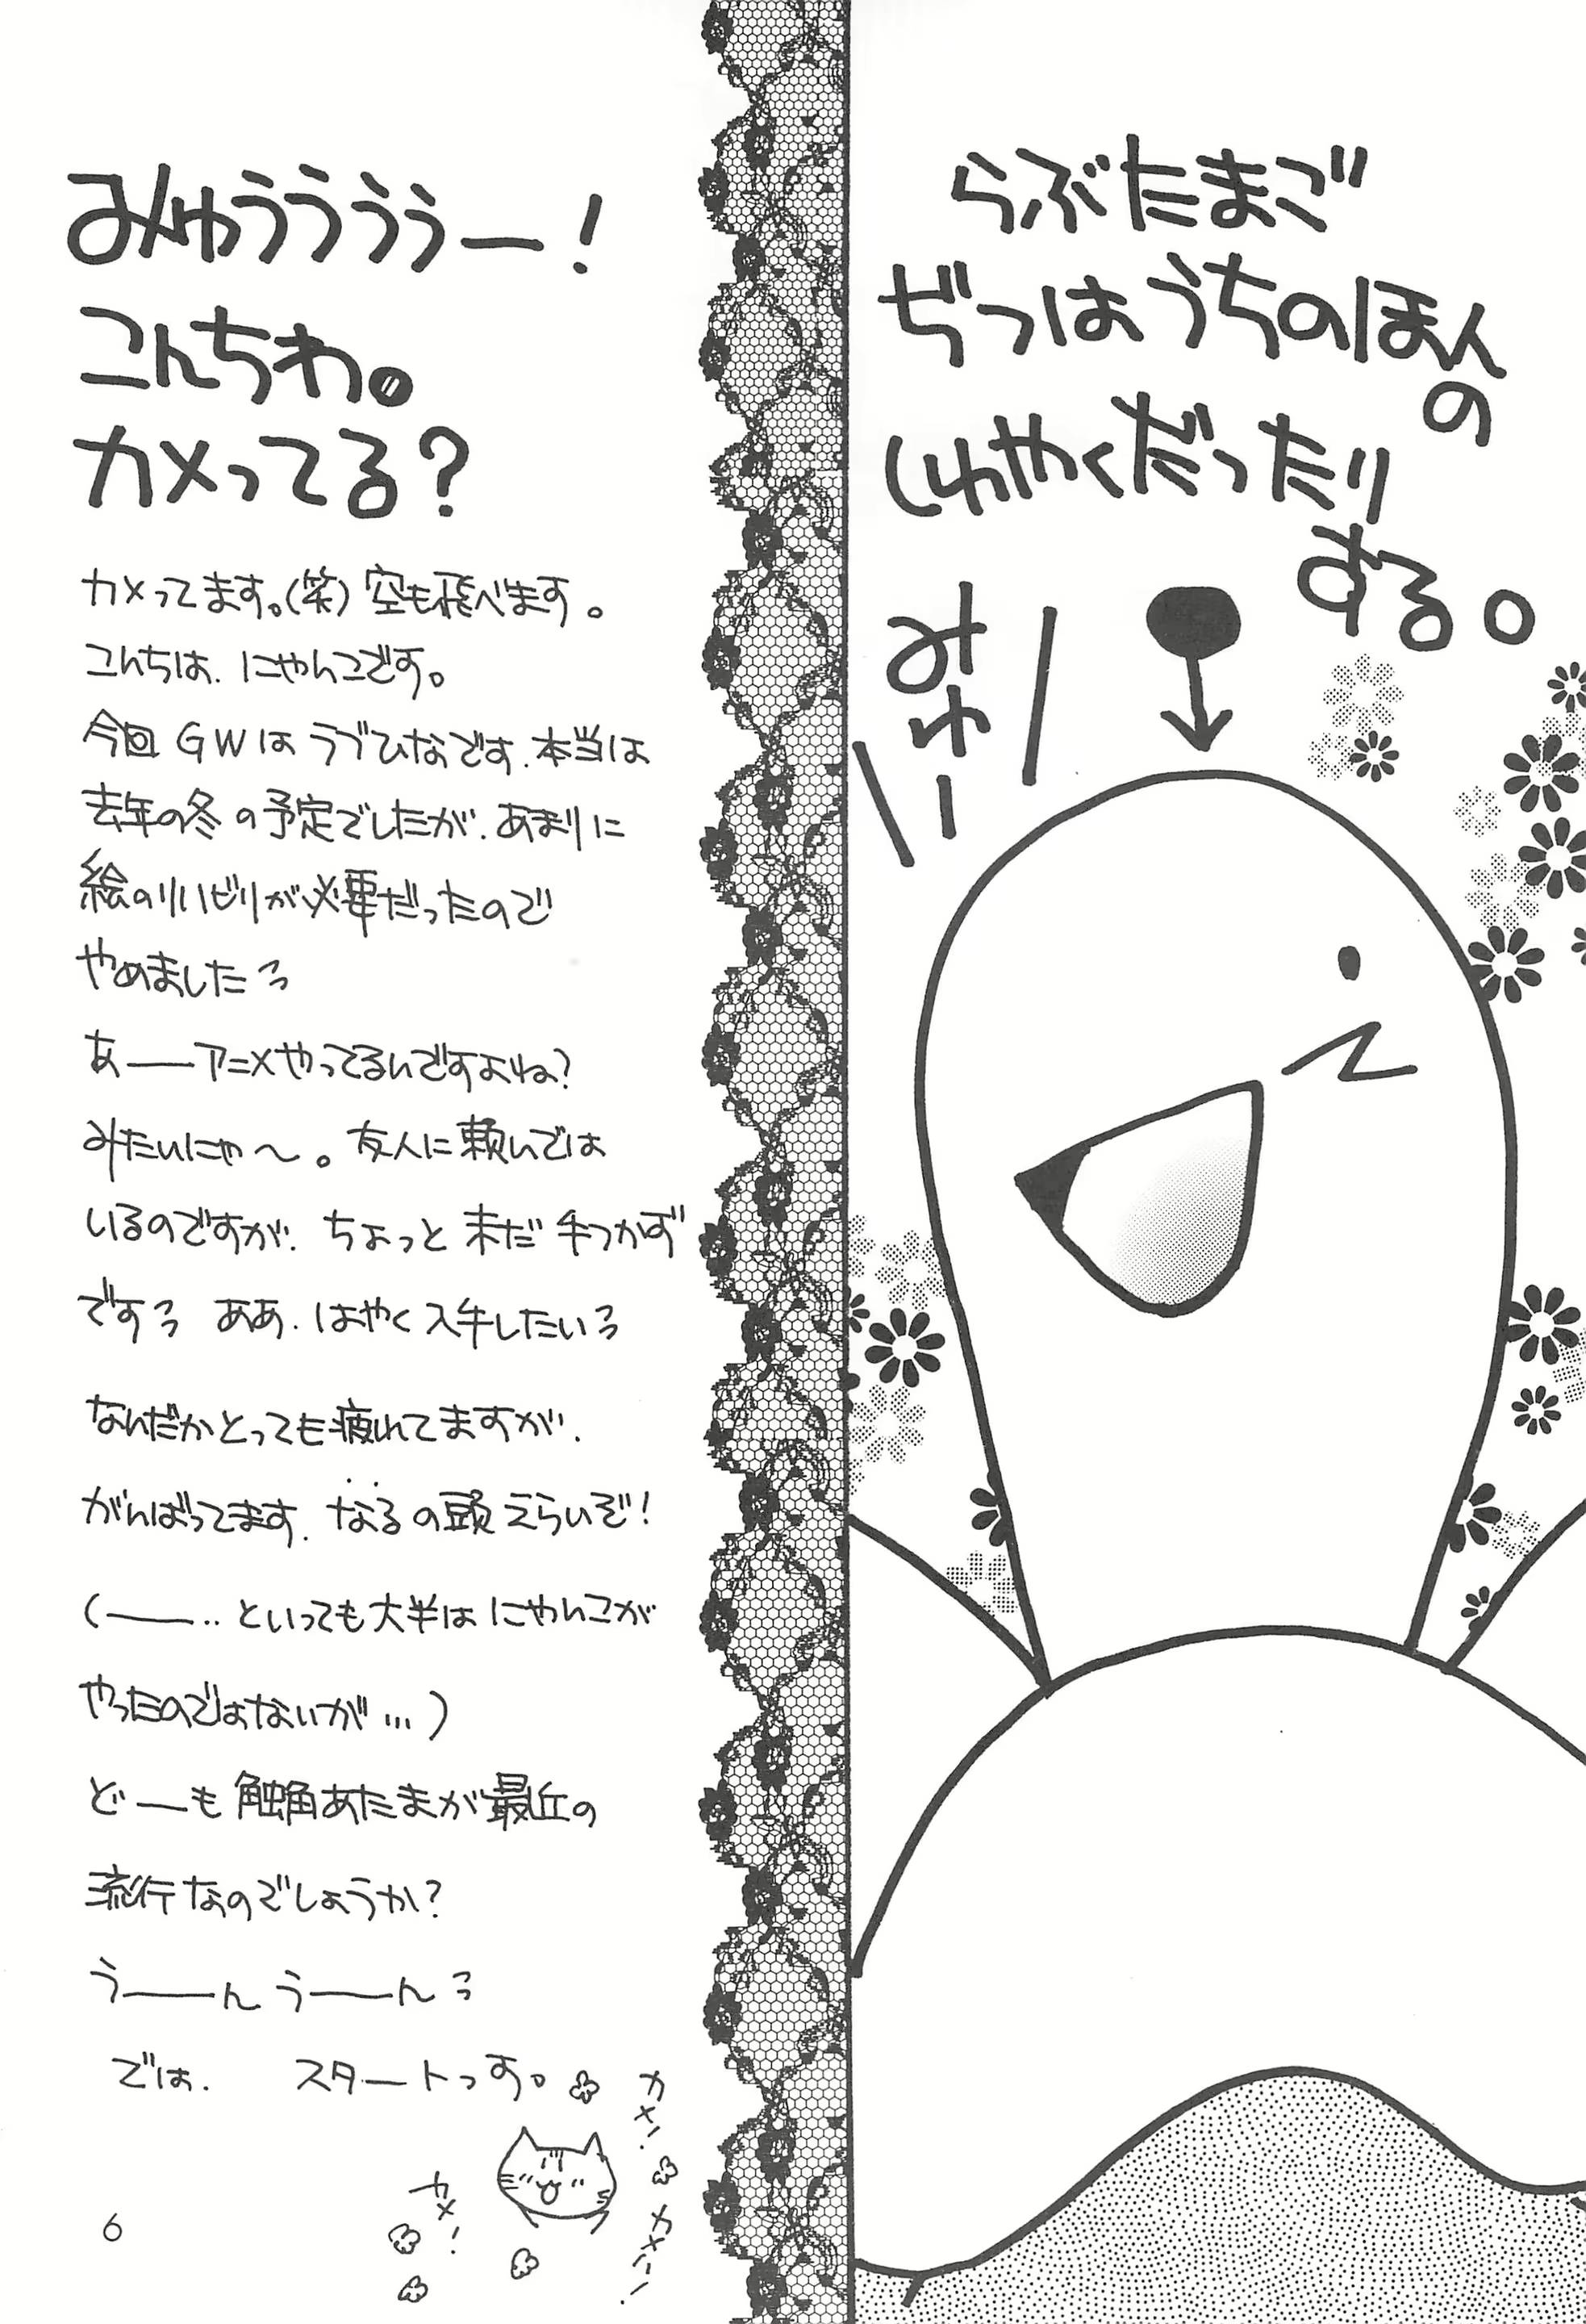 みゅうううぅー!
こんちわ。
カメってる?
カメってます。(笑)空も飛べます。
こんちは、にゃんこです。
今回GWはラブひなです、本当は
去年の冬の予定でしたが、あまりに
絵のリハビリが必要だったので
やめましたっ
あーーアニメやってるんですよね?
みたいにゃ〜。友人に頼んでは
いるのですが、ちょっと未だ手つかず
ですっ ああ、はやく入手したいっ
なんだかとっても疲れてますが、
がんばってます、なるの頭えらいぞ!
(ーー‥といっても大半はにゃんこが
やったのではないが…)
どーも触角あたまが最近の
流行なのでしょうか?
うーーんうーーんっ
では、 スタートっす。
カメ!
カメ!
カメハー!
6
らぶたまご
ぢつはうちのほんの
しゅやくだったり
する。
みゅー